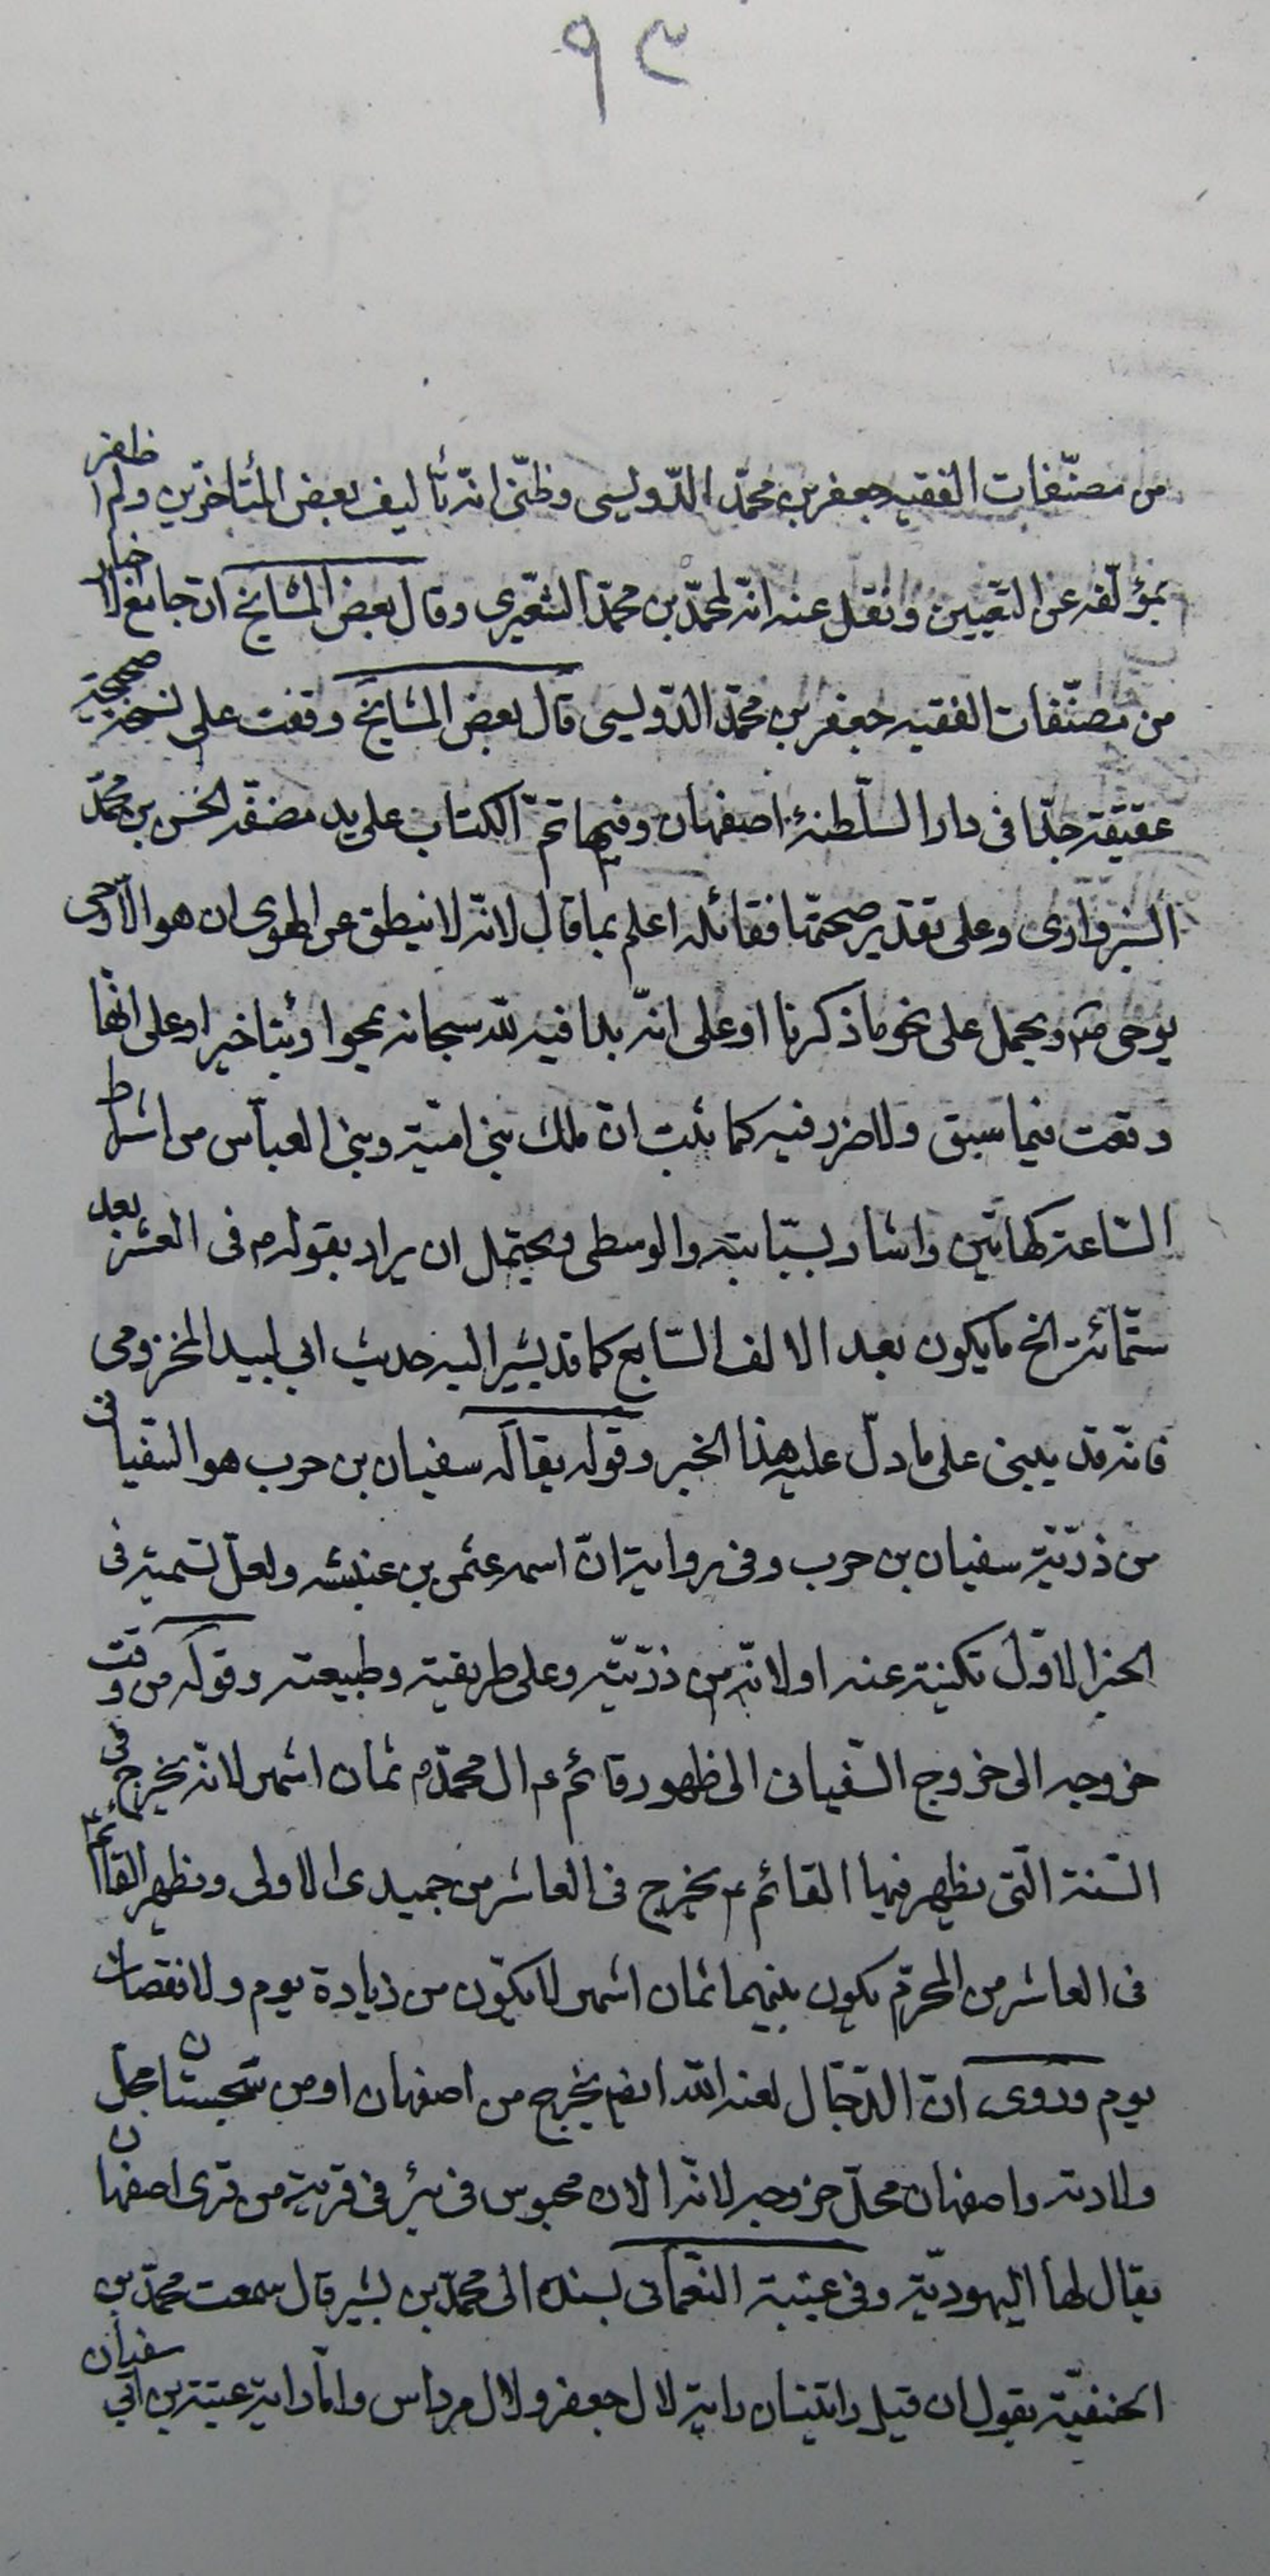 ٩٣
من مصنّفات الفقيه جعفر بن محمّد الدّوليسى وظنّى انّه تأليف بعض المتأخّرين ولم اظفر
بمؤلّفه عن التعيين ونقل عنه انّه لمحمّد بن محمّد الشّعيرى وقال بعض المشايخ انّ جامع الاخبار
من مصنّفات الفقيه جعفر بن محمّد الدّوليسى قال بعض المشايخ وقفت على نسخة صحيحة
عقيقة جدّا فى دار السّلطنة اصفهان وفيها تمّ الكتاب على يد مصنّفه الحسن بن محمّد
السبزوارى وعلى تقدير صحّتها فقائله اعلم بما قال لانّه لا ينطق عن الهوى ان هو الّا وحى
يوحى ويحمل على نحو ما ذكرنا او على انّه بدا فيه لله سبحانه محوا وتأخيرا او على انّها
وقعت فيما سبق ولا ضرر فيه كما ثبت انّ ملك بنى اميّة وبنى العبّاس من اشراط
السّاعة كهاتين واشار بسبّابته والوسطى ويحتمل ان يراد بقوله ص فى العشر بعد
ستّمائة الخ ما يكون بعد الالف السّابع كما قد يشير اليه حديث ابى لبيد المخزومى
فانّه قد يبنى على ما دلّ عليه هذا الخبر وقوله يقال له سفيان بن حرب هو السّفيانى
من ذرّيّة سفيان بن حرب وفى رواية انّ اسمه عثمن بن عنبسه ولعلّ تسميته فى
الخبر الاوّل تكنية عنه او لانّه من ذرّيّته وعلى طريقته وطبيعته وقوله من وقت
خروجه الى خروج السّفيانى الى ظهور قائم ع ال محمّد ص ثمان اشهر لانّه يخرج فى
السّنة الّتى يظهر فيها القائم ع يخرج فى العاشر من جميدى الاولى ويظهر القائم ع
فى العاشر من المحرّم يكون بينهما ثمان اشهر لا يكون من زيادة يوم ولا نقصان
يوم وروى انّ الدّجّال لعنه الله ايضا يخرج من اصفهان او من سجستان محلّ
ولادته واصفهان محلّ خروجه لانّه الان محبوس فى بئر فى قرية من قرى اصفهان
يقال لها اليهوديّة وفى غيبة النّعمانى بسنده الى محمّد بن بشير قال سمعت محمّد بن
الحنفيّة يقول ان قبل راياتنا راية لال جعفر ولال مرداس وامّا راية عتبة بن ابى سفيان